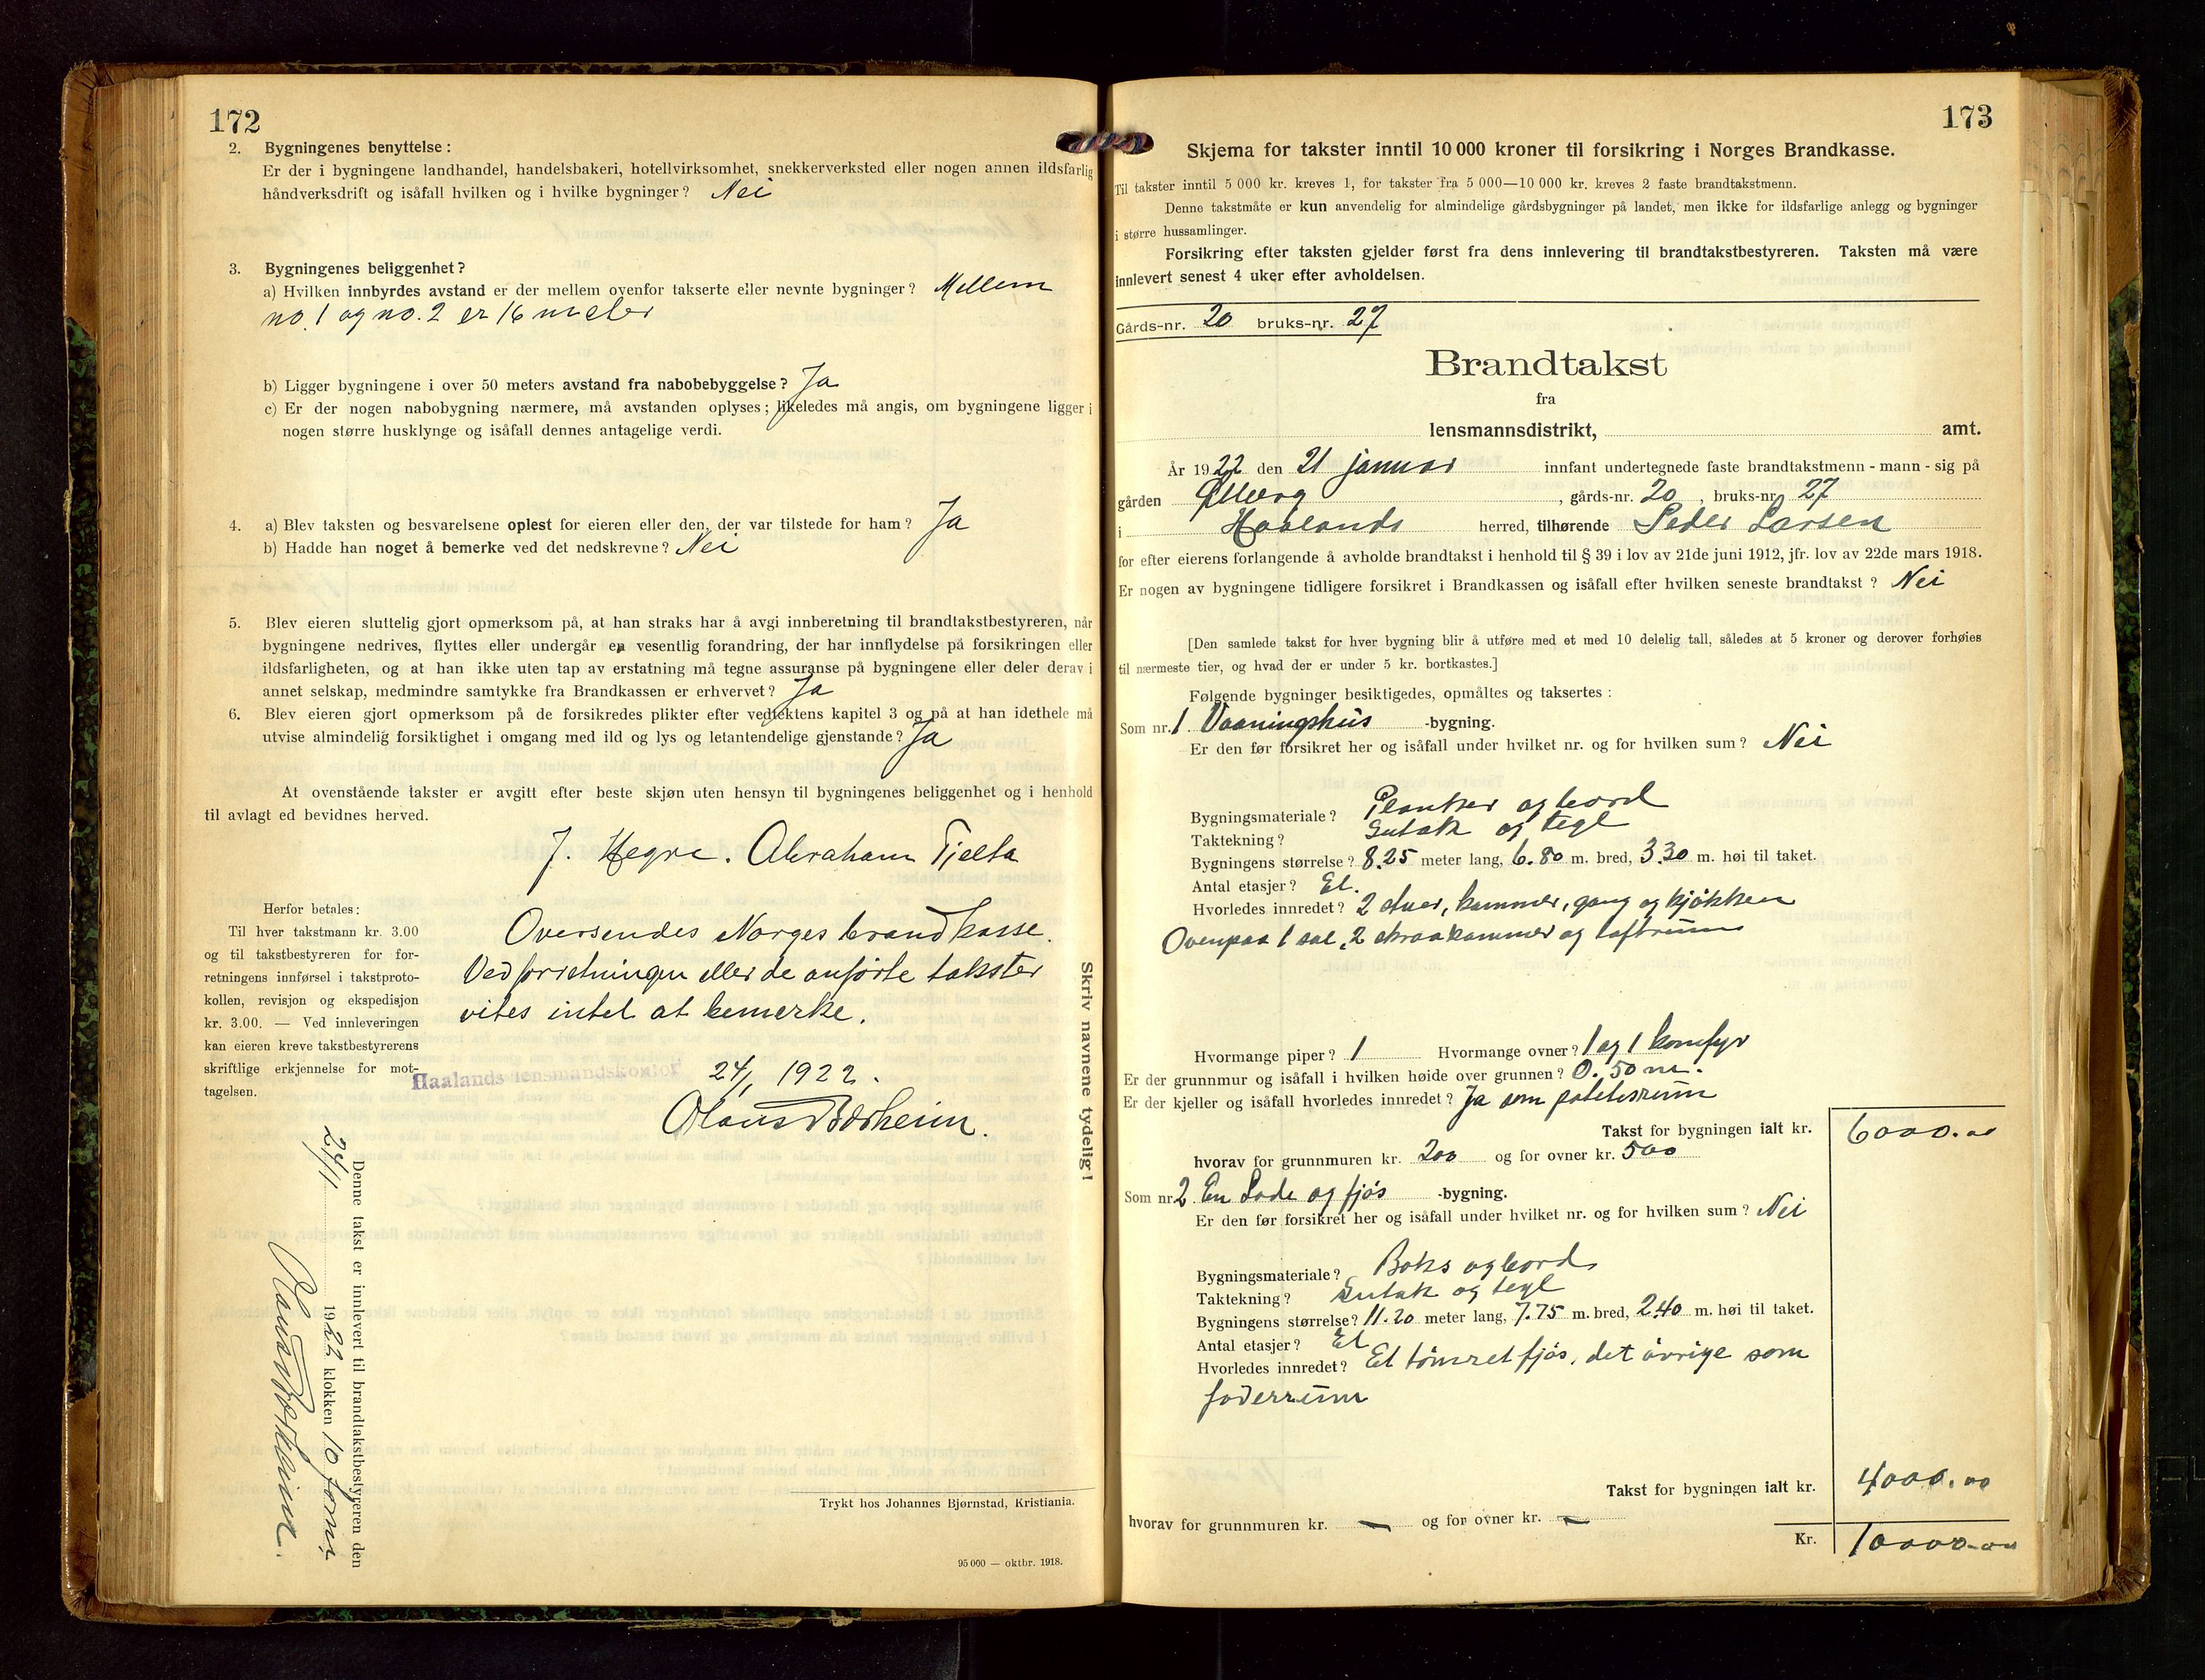 172
2. Bygningenes benyttelse:
Er der i bygningene landhandel, handelsbakeri, hotellvirksomhet, snekkerverksted eller nogen annen ildsfarlig
håndverksdrift og isåfall hvilken og i hvilke bygninger? Nei
3. Bygningenes beliggenhet?
a) Hvilken innbyrdes avstand er der mellem ovenfor takserte eller nevnte bygninger? Mellem
no. 1 og no. 2 er 16 meter
b) Ligger bygningene i over 50 meters avstand fra nabobebyggelse? Ja
c) Er der nogen nabobygning nærmere, må avstanden oplyses; likeledes må angis, om bygningene ligger i
nogen større husklynge og isåfall dennes antagelige verdi.
4. a) Blev taksten og besvarelsene oplest for eieren eller den, der var tilstede for ham? Ja
b) Hadde han noget å bemerke ved det nedskrevne? Nei
5. Blev eieren sluttelig gjort opmerksom på, at han straks har å avgi innberetning til brandtakstbestyreren, når
bygningene nedrives, flyttes eller undergår en vesentlig forandring, der har innflydelse på forsikringen eller
ildsfarligheten, og at han ikke uten tap av erstatning må tegne assuranse på bygningene eller deler derav i
annet selskap, medmindre samtykke fra Brandkassen er erhvervet? Ja
6. Blev eieren gjort opmerksom på de forsikredes plikter efter vedtektens kapitel 3 og på at han idethele må
utvise almindelig forsiktighet i omgang med ild og lys og letantendelige gjenstande? Ja
At ovenstående takster er avgitt efter beste skjøn uten hensyn til bygningenes beliggenhet og i henhold
til avlagt ed bevidnes herved.
J. Hegre. Abraham Tjelta
Herfor betales:
Til hver takstmann kr. 3.00
og til takstbestyreren for for-
retningens innførsel i takstproto-
kollen, revisjon og ekspedisjon
kr. 3.00. — Ved innleveringen
kan eieren kreve takstbestyrerens
skriftlige erkjennelse for mot-
tagelsen.
Oversendes Norges brandkasse.
Ved forretningen eller de anførte takster
vites intet at bemerke.
Haalands lensmandskontor 24/1 1922.
Olaus Børheim.
Skriv navnene tydelig!
Denne takst er innlevert til brandtakstbestyreren den
24/1 1922 klokken 10 form.
Olaus Børheim.
Trykt hos Johannes Bjørnstad, Kristiania.
95 000 — oktbr. 1918.
173
Skjema for takster inntil 10 000 kroner til forsikring i Norges Brandkasse.
Til takster inntil 5 000 kr. kreves 1, for takster fra 5 000—10 000 kr. kreves 2 faste brandtakstmenn.
Denne takstmåte er kun anvendelig for almindelige gårdsbygninger på landet, men ikke for ildsfarlige anlegg og bygninger
i større hussamlinger.
Forsikring efter taksten gjelder først fra dens innlevering til brandtakstbestyreren. Taksten må være
innlevert senest 4 uker efter avholdelsen.
Gårds-nr. 20 bruks-nr. 27
Brandtakst
fra
lensmannsdistrikt, amt.
År 1922 den 21 januar innfant undertegnede faste brandtakstmenn - mann - sig på
gården , gårds-nr. 20, bruks-nr. 27
i Haalands herred, tilhørende Peder Larsen
for efter eierens forlangende å avholde brandtakst i henhold til § 39 i lov av 21de juni 1912, jfr. lov av 22de mars 1918.
Er nogen av bygningene tidligere forsikret i Brandkassen og isåfall efter hvilken seneste brandtakst? Nei
[Den samlede takst for hver bygning blir å utføre med et med 10 delelig tall, således at 5 kroner og derover forhøies
til nærmeste tier, og hvad der er under 5 kr. bortkastes.]
Følgende bygninger besiktigedes, opmåltes og taksertes:
Som nr. 1 Vaaningshus -bygning.
Er den før forsikret her og isåfall under hvilket nr. og for hvilken sum? Nei
Bygningsmateriale? Planker og bord
Taktekning? Sutak og tegl
Bygningens størrelse? 8.25 meter lang, 6.80 m. bred, 3.30 m. høi til taket.
Antal etasjer? Et.
Hvorledes innredet? 2 stuer, kammer, gang og kjøkken
Ovenpaa 1 sal, 2 skraakammer og loftrum
Hvormange piper? 1 Hvormange ovner? 1 og 1 komfyr
Er der grunnmur og isåfall i hvilken høide over grunnen? 0.50 m.
Er der kjeller og isåfall hvorledes innredet? Ja som potetesrum
Takst for bygningen ialt kr. 6000.00
hvorav for grunnmuren kr. 200 og for ovner kr. 500
Som nr. 2. En Lade og fjøs -bygning.
Er den før forsikret her og isåfall under hvilket nr. og for hvilken sum? Nei
Bygningsmateriale? Boks og bord
Taktekning? Sutak og tegl
Bygningens størrelse? 11.20 meter lang, 7.75 m. bred, 2.40 m. høi til taket.
Antal etasjer? Et
Hvorledes innredet? Et tømret fjøs, det øvrige som
foderrum
Takst for bygningen ialt kr. 4000.00
hvorav for grunnmuren kr. — og for ovner kr. —
Kr. 10000.00